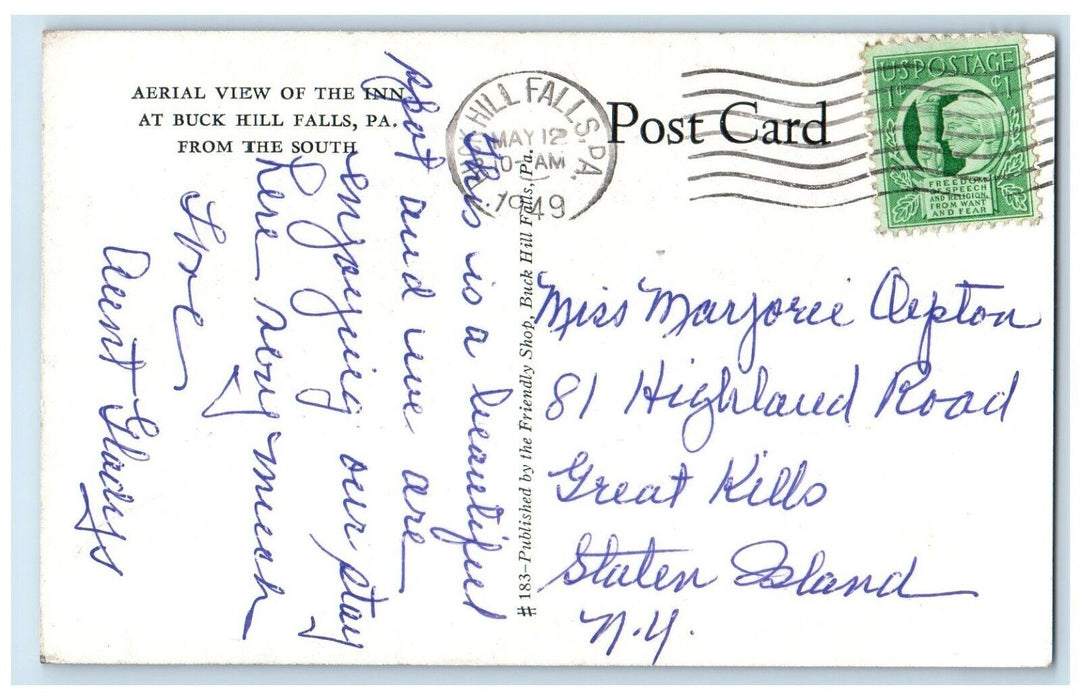 AERIAL VIEW OF THE INN
AT BUCK HILL FALLS, PA.
FROM THE SOUTH
This is a beautiful
spot and we are
enjoying our stay
here very much
Love
Aunt Gladys
# 183-Published by the Friendly Shop, Buck Hill Falls, Pa.
BUCK HILL FALLS, PA.
MAY 12
10-AM
1949
Post Card
US POSTAGE
1¢
FREEDOM OF
SPEECH
AND RELIGION,
FROM WANT
AND FEAR
Miss Marjorie Upton
81 Highland Road
Great Kills
Staten Island
N.Y.